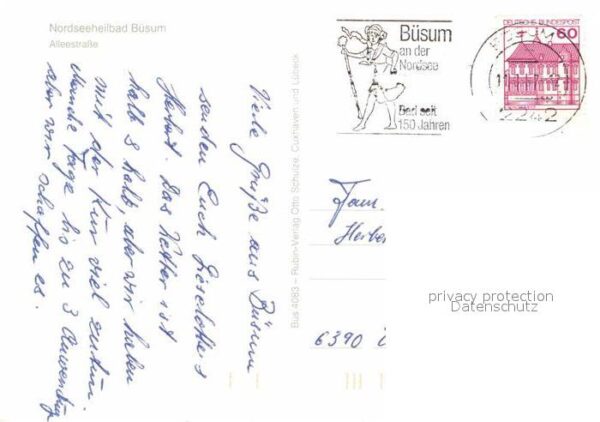 Nordseeheilbad Büsum
Alleestraße
Viele Grüße aus Büsum
senden Euch Lieselotte &
Herbert. Das Wetter ist
halb & halb, aber wir haben
mit der Kur viel zutun.
Manche Tage bis zu 3 Anwendung
aber wir schaffen es.
Bus 4083 – Rubin-Verlag Otto Schulze, Cuxhaven und Lübeck
Büsum
an der
Nordsee
Bad seit
150 Jahren
DEUTSCHE BUNDESPOST
60
2242
Fam.
Herbe
6390
privacy protection
Datenschutz